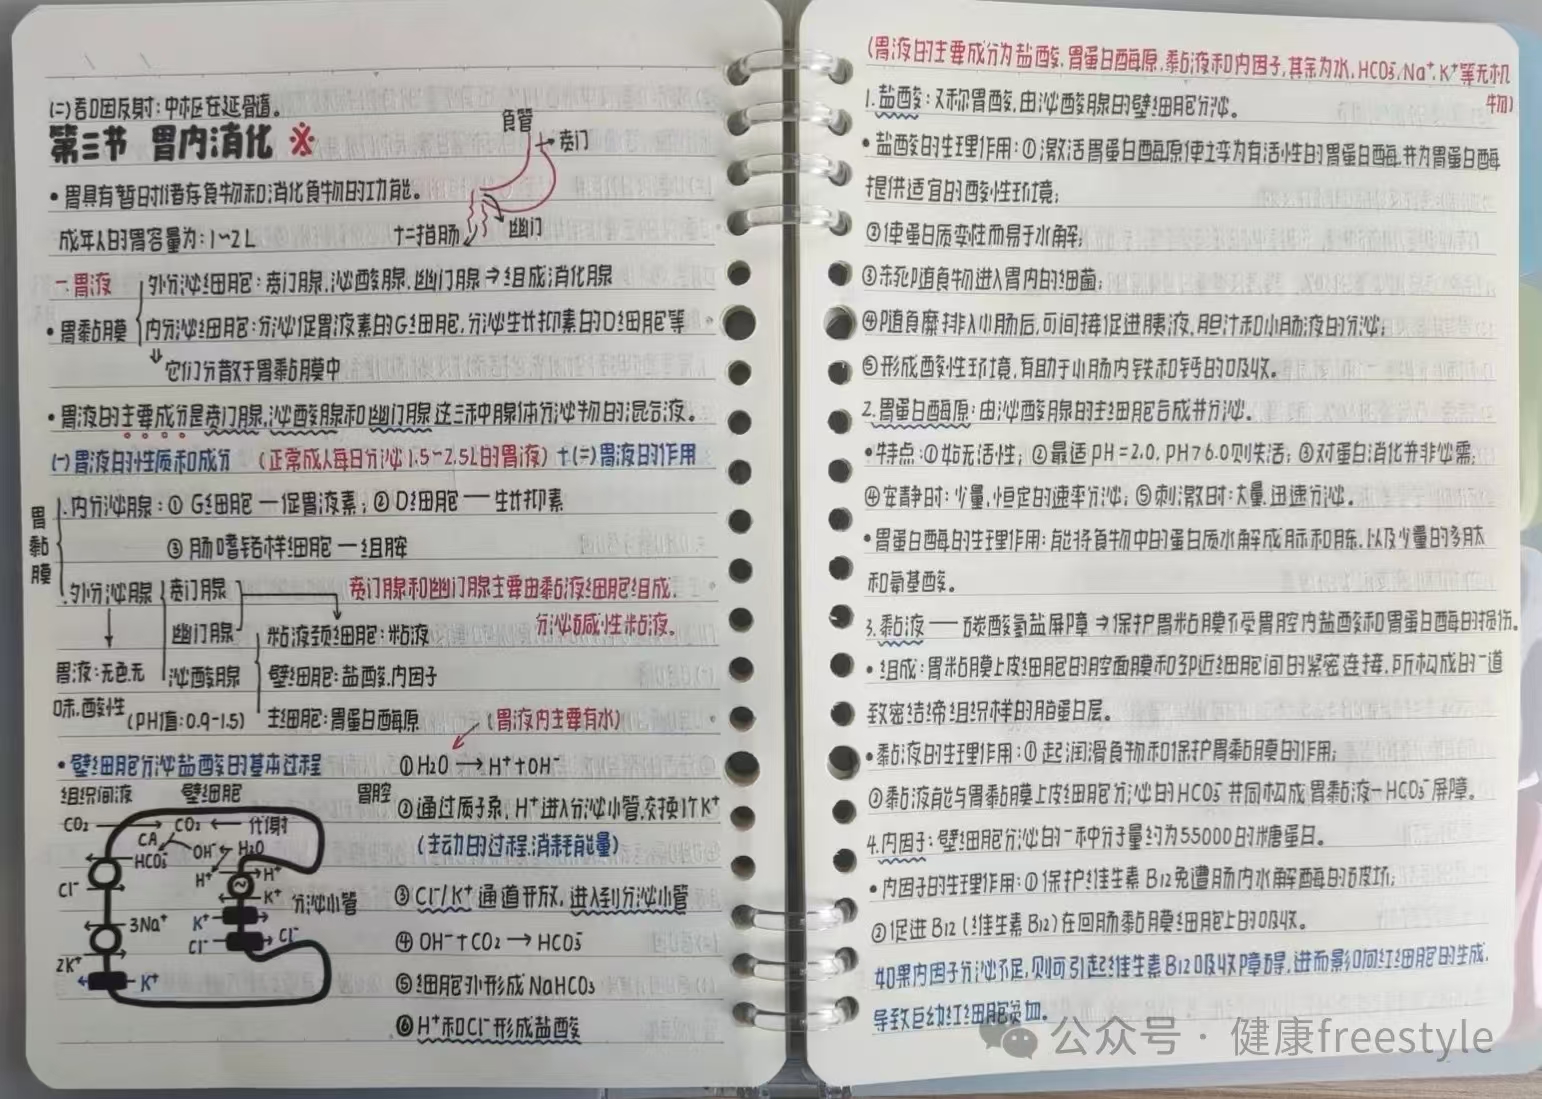 (二)吞咽反射:中枢在延骨值。
第三节 胃内消化 ※
食管
贲门
幽门
十二指肠
•胃具有暂时储存食物和消化食物的功能。
成年人的胃容量为:1~2L
一.胃液
外分泌细胞:贲门腺,泌酸腺,幽门腺⇒组成消化腺
•胃黏膜
内分泌细胞:分泌促胃液素的G细胞,分泌生长抑素的D细胞等
它们分散于胃黏膜中
•胃液的主要成分是贲门腺,泌酸腺和幽门腺这三种腺体分泌物的混合液。
(一)胃液的性质和成分 (正常成人每日分泌1.5~2.5L的胃液)+(二)胃液的作用
胃黏膜
内分泌腺:① G细胞—促胃液素;② D细胞——生长抑素
③ 肠嗜铬样细胞—组胺
外分泌腺
贲门腺
幽门腺
泌酸腺
贲门腺和幽门腺主要由黏液细胞组成.
分泌碱性粘液.
粘液颈细胞:粘液
壁细胞:盐酸.内因子
主细胞:胃蛋白酶原
胃液:无色.无
味.酸性(PH值:0.9-1.5)
(胃液内主要有水)
•壁细胞分泌盐酸的基本过程
组织间液 壁细胞 胃腔
CO₂ → CO₂ ← 代谢
CA OH⁻ H₂O
HCO₃⁻
H⁺ H⁺
Cl⁻
K⁺ 分泌小管
3Na⁺ K⁺
Cl⁻ Cl⁻
2K⁺
K⁺
①H₂O→H⁺+OH⁻
②通过质子泵,H⁺进入分泌小管,交换1个K⁺
(主动的过程,消耗能量)
③ Cl⁻/K⁺通道开放,进入到分泌小管
④ OH⁻+CO₂→HCO₃⁻
⑤ 细胞外形成NaHCO₃
⑥ H⁺和Cl⁻形成盐酸
(胃液的主要成分为盐酸.胃蛋白酶原.黏液和内因子,其余为水,HCO₃⁻,Na⁺,K⁺等无机
物)
1.盐酸:又称胃酸,由泌酸腺的壁细胞分泌。
•盐酸的生理作用:①激活胃蛋白酶原使土变为有活性的胃蛋白酶.并为胃蛋白酶
提供适宜的酸性环境;
②使蛋白质变性而易于水解;
③杀死随食物进入胃内的细菌;
④随食糜排入小肠后,可间接促进胰液,胆汁和小肠液的分泌;
⑤形成酸性环境,有助于小肠内铁和钙的吸收。
2.胃蛋白酶原:由泌酸腺的主细胞合成并分泌。
•特点:①如无活性;②最适pH=2.0,PH>6.0则失活;③对蛋白消化并非必需;
④安静时:少量,恒定的速率分泌;⑤刺激时:大量.迅速分泌。
•胃蛋白酶的生理作用:能将食物中的蛋白质水解成䏡和胨,以及少量的多肽
和氨基酸。
3.黏液——碳酸氢盐屏障⇒保护胃粘膜不受胃腔内盐酸和胃蛋白酶的损伤。
•组成:胃粘膜上皮细胞的腔面膜和邻近细胞间的紧密连接,所构成的一道
致密结缔组织样的脂蛋白层。
•黏液的生理作用:①起润滑食物和保护胃黏膜的作用;
②黏液能与胃黏膜上皮细胞分泌的HCO₃⁻共同构成胃黏液-HCO₃⁻屏障。
4.内因子:壁细胞分泌的一种分子量约为55000的糖蛋白。
•内因子的生理作用:①保护维生素B12免遭肠内水解酶的破坏;
②促进B12(维生素B12)在回肠黏膜细胞上的吸收。
如果内因子分泌不足,则可引起维生素B12吸收障碍,进而影响红细胞的生成,
导致巨幼红细胞贫血。
公众号·健康freestyle